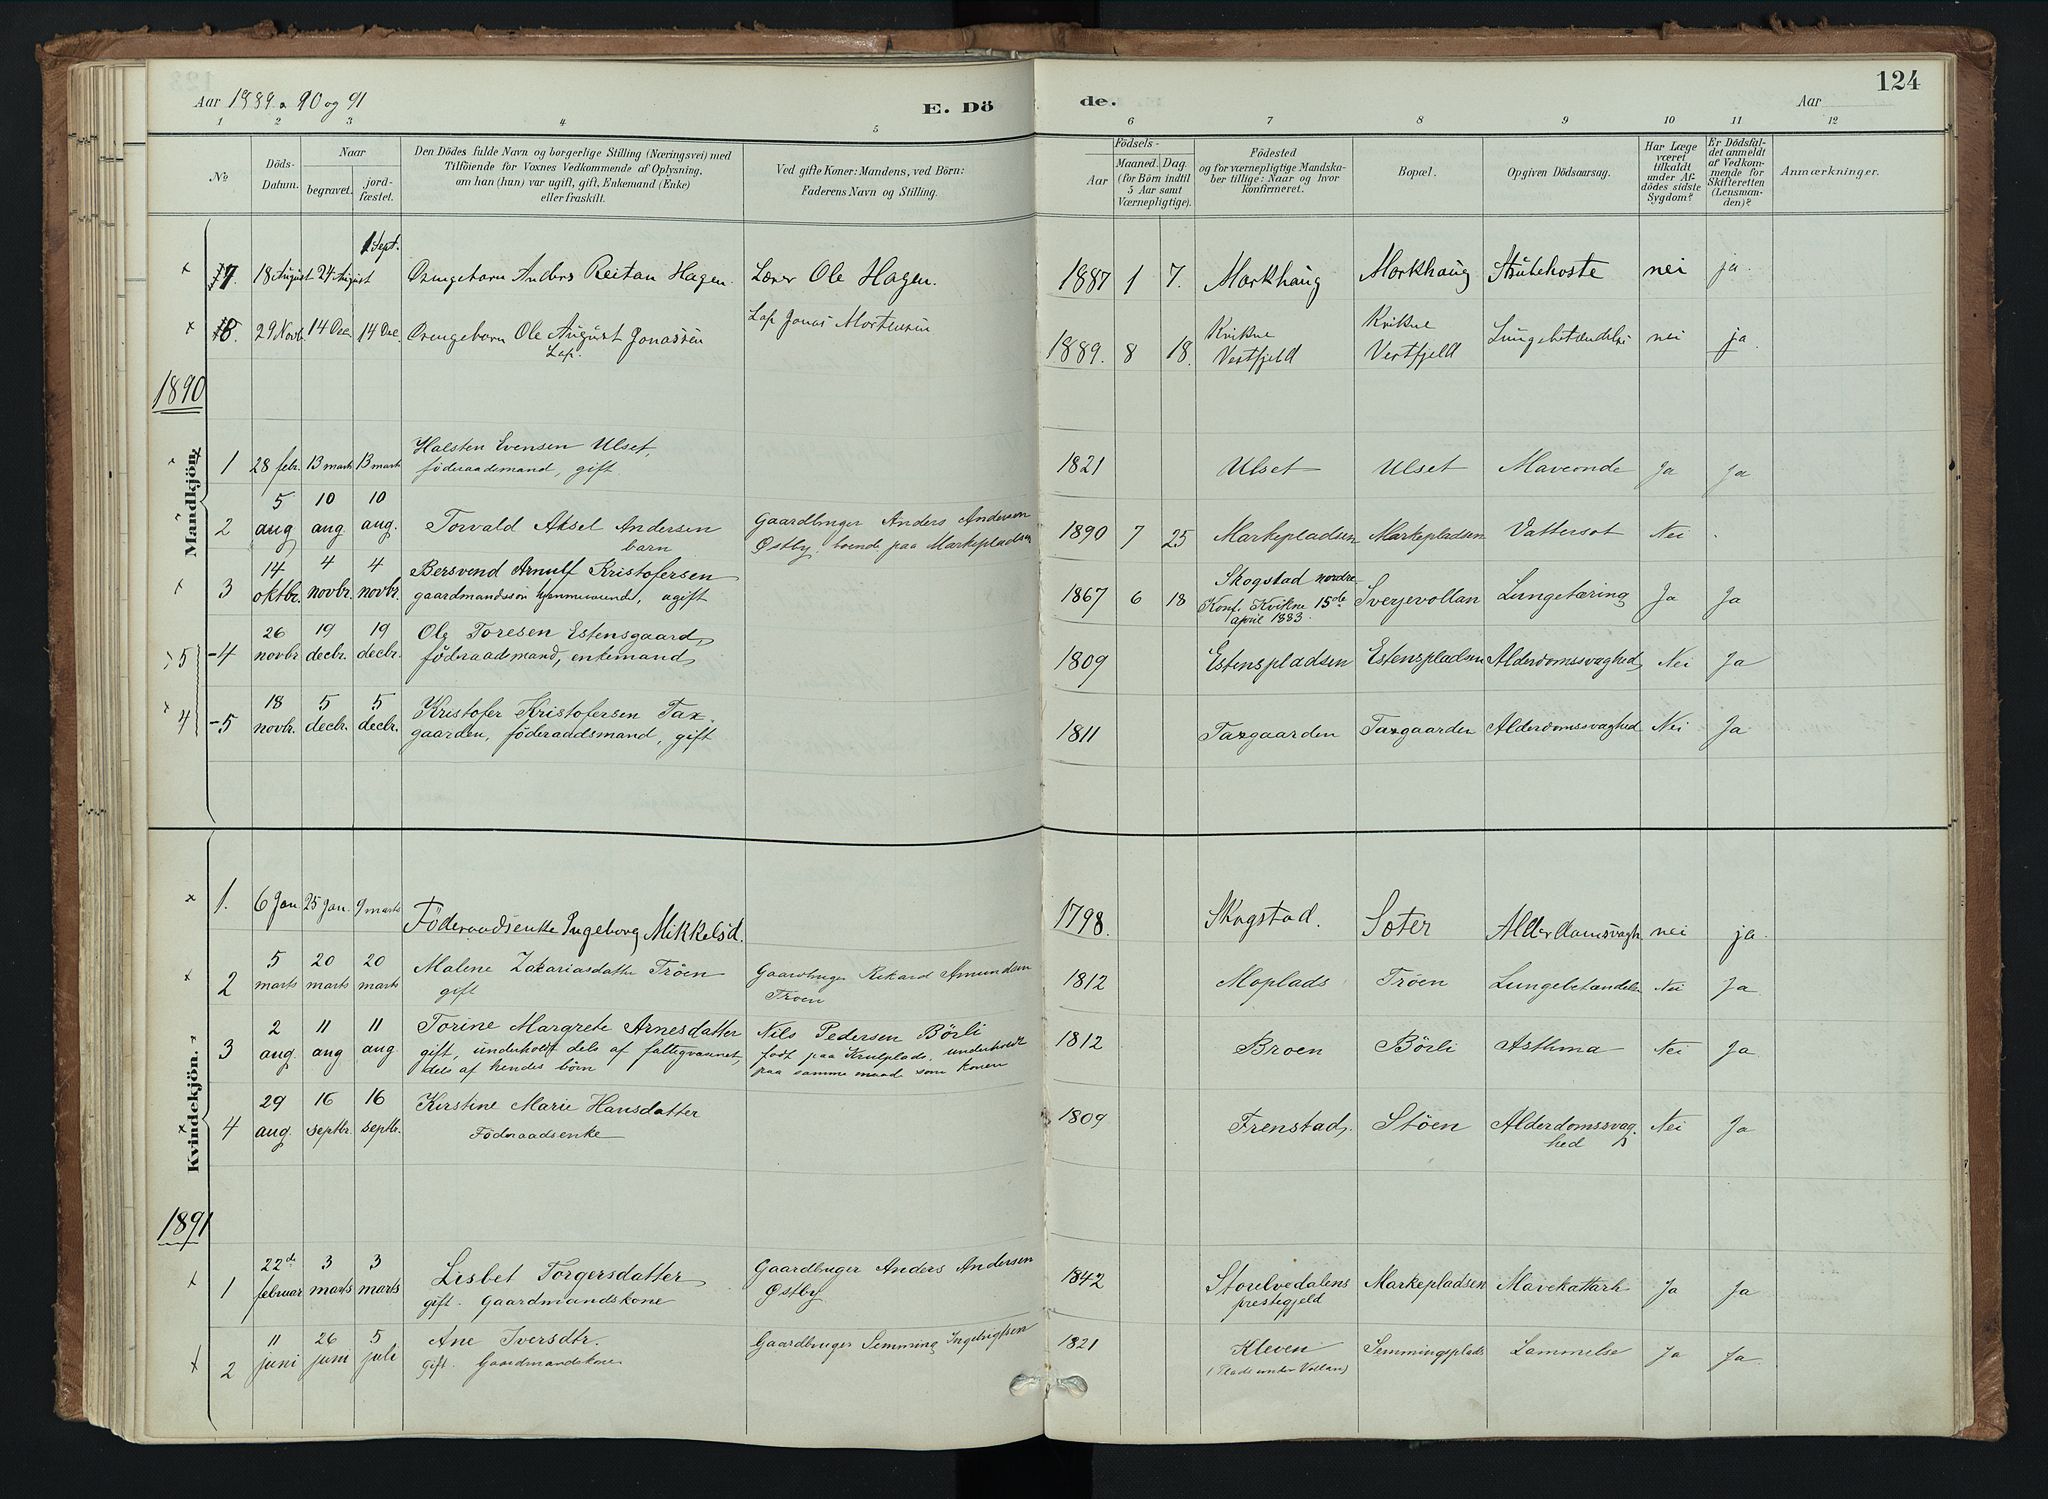 Aar 1889. 90 og 91
E. Dö
de.
Aar
124
1 2 3 4 5 6 7 8 9 10 11 12
No
Döds-Datum.
Naar
begravet.
jord-fæstet.
Den Dödes fulde Navn og borgerlige Stilling (Næringsvei) med
Tilföiende for Voxnes Vedkommende af Oplysning,
om han (hun) var ugift, gift, Enkemand (Enke)
eller fraskilt.
Ved gifte Koner: Mandens, ved Börn:
Faderens Navn og Stilling.
Födsels-
Aar
Maaned. Dag.
(for Börn indtil
5 Aar samt
Værnepligtige).
Födested
og for værnepligtige Mandska-
ber tillige: Naar og hvor
konfirmeret.
Bopæl.
Opgiven Dödsaarsag.
Har Læge
været
tilkaldt
under Af-
dödes sidste
Sygdom?
Er Dödsfal-
det anmeldt
af Vedkom-
mende for
Skifteretten
(Lensman-
den)?
Anmærkninger.
17. 18 August 24 August 1 Sept. Drengebarn Anders Reitan Hagen. Lærer Ole Hagen. 1887 1 7. Morkhaug Morkhaug Strubehoste nei ja.
18. 29 Novb. 14 Dec 14 Dec. Drengebarn Ole August Jonassen Lap. Lap Jonas Mortensen 1889. 8 18. Kvikne Vestfjeld Kvikne Vestfjeld Lungebetændelse nei ja.
1890
Mandkjön.
1 28 febr. 13 marts 13 marts Halsten Evensen Ulset,
föderaadsmand, gift 1821 Ulset Ulset Maveonde Ja Ja
2 5 aug 10 aug. 10 aug. Torvald Aksel Andersen
barn Gaardbruger Anders Andersen
Østby, boende paa Markepladsen 1890 7 25 Markepladsen Markepladsen Vattersot Nei
3 14 oktbr. 4 novbr. 4 novbr. Bersvend Arnulf Kristofersen
gaardmandssön hjemmeværende, ugift 1867 6 18 Skogstad nordre
Konf. Kvikne 15de
april 1883. Sverjevollan Lungetæring Ja Ja
5 - 4 26 novbr. 19 decbr. 19 decbr. Ole Toresen Estensgaard,
föderaadsmand, enkemand 1809 Estenspladsen Estenspladsen Alderdomssvaghed Nei Ja
4 - 5 18 novbr. 5 decbr. 5 decbr. Kristofer Kristofersen Tax-
gaarden, föderaadsmand, gift 1811 Taxgaarden Taxgaarden Alderdomssvaghed Nei Ja
Kvindekjön.
1. 6 Jan. 25 Jan. 9 marts Föderaadsenke Ingeborg Mikkelsd. 1798. Skogstad. Soter Alderdomsvagh. nei ja.
2 5 marts 20 marts 20 marts Malene Zakariasdatter Tröen
gift Gaardbruger Rikard Amundsen
Troen 1812 Moplads Tröen Lungebetændelse Nei Ja
3 2 aug. 11 aug 11 aug Torine Margrete Arnesdatter
gift, underholdt dels af fattigvæsnet,
dels af hendes börn Nils Pedersen Börli
født paa Krulplads, underholdt
paa samme maade som konen 1812 Broen Börli Asthma Nei Ja
4 29 aug. 16 septbr. 16 septbr. Kirstine Marie Hansdatter
Föderaadsenke 1809 Frenstad Stöen Alderdomssvag-
hed Nei Ja
1891
1 22d februar 3 marts 3 marts Lisbet Torgersdatter
gift. Gaardmandskone Gaardbruger Anders Andersen
Østby 1842 Storelvedalens
prestegjeld Markepladsen Mavekattarh Ja Ja
2 11 juni 26 juni 5 juli Ane Iversdtr.
gift. Gaardmandskone Gaardbruger Semming Ingebrigtsen 1821 Kleven
(Plads under Vollan) Semmingsplads Lammelse Ja Ja.